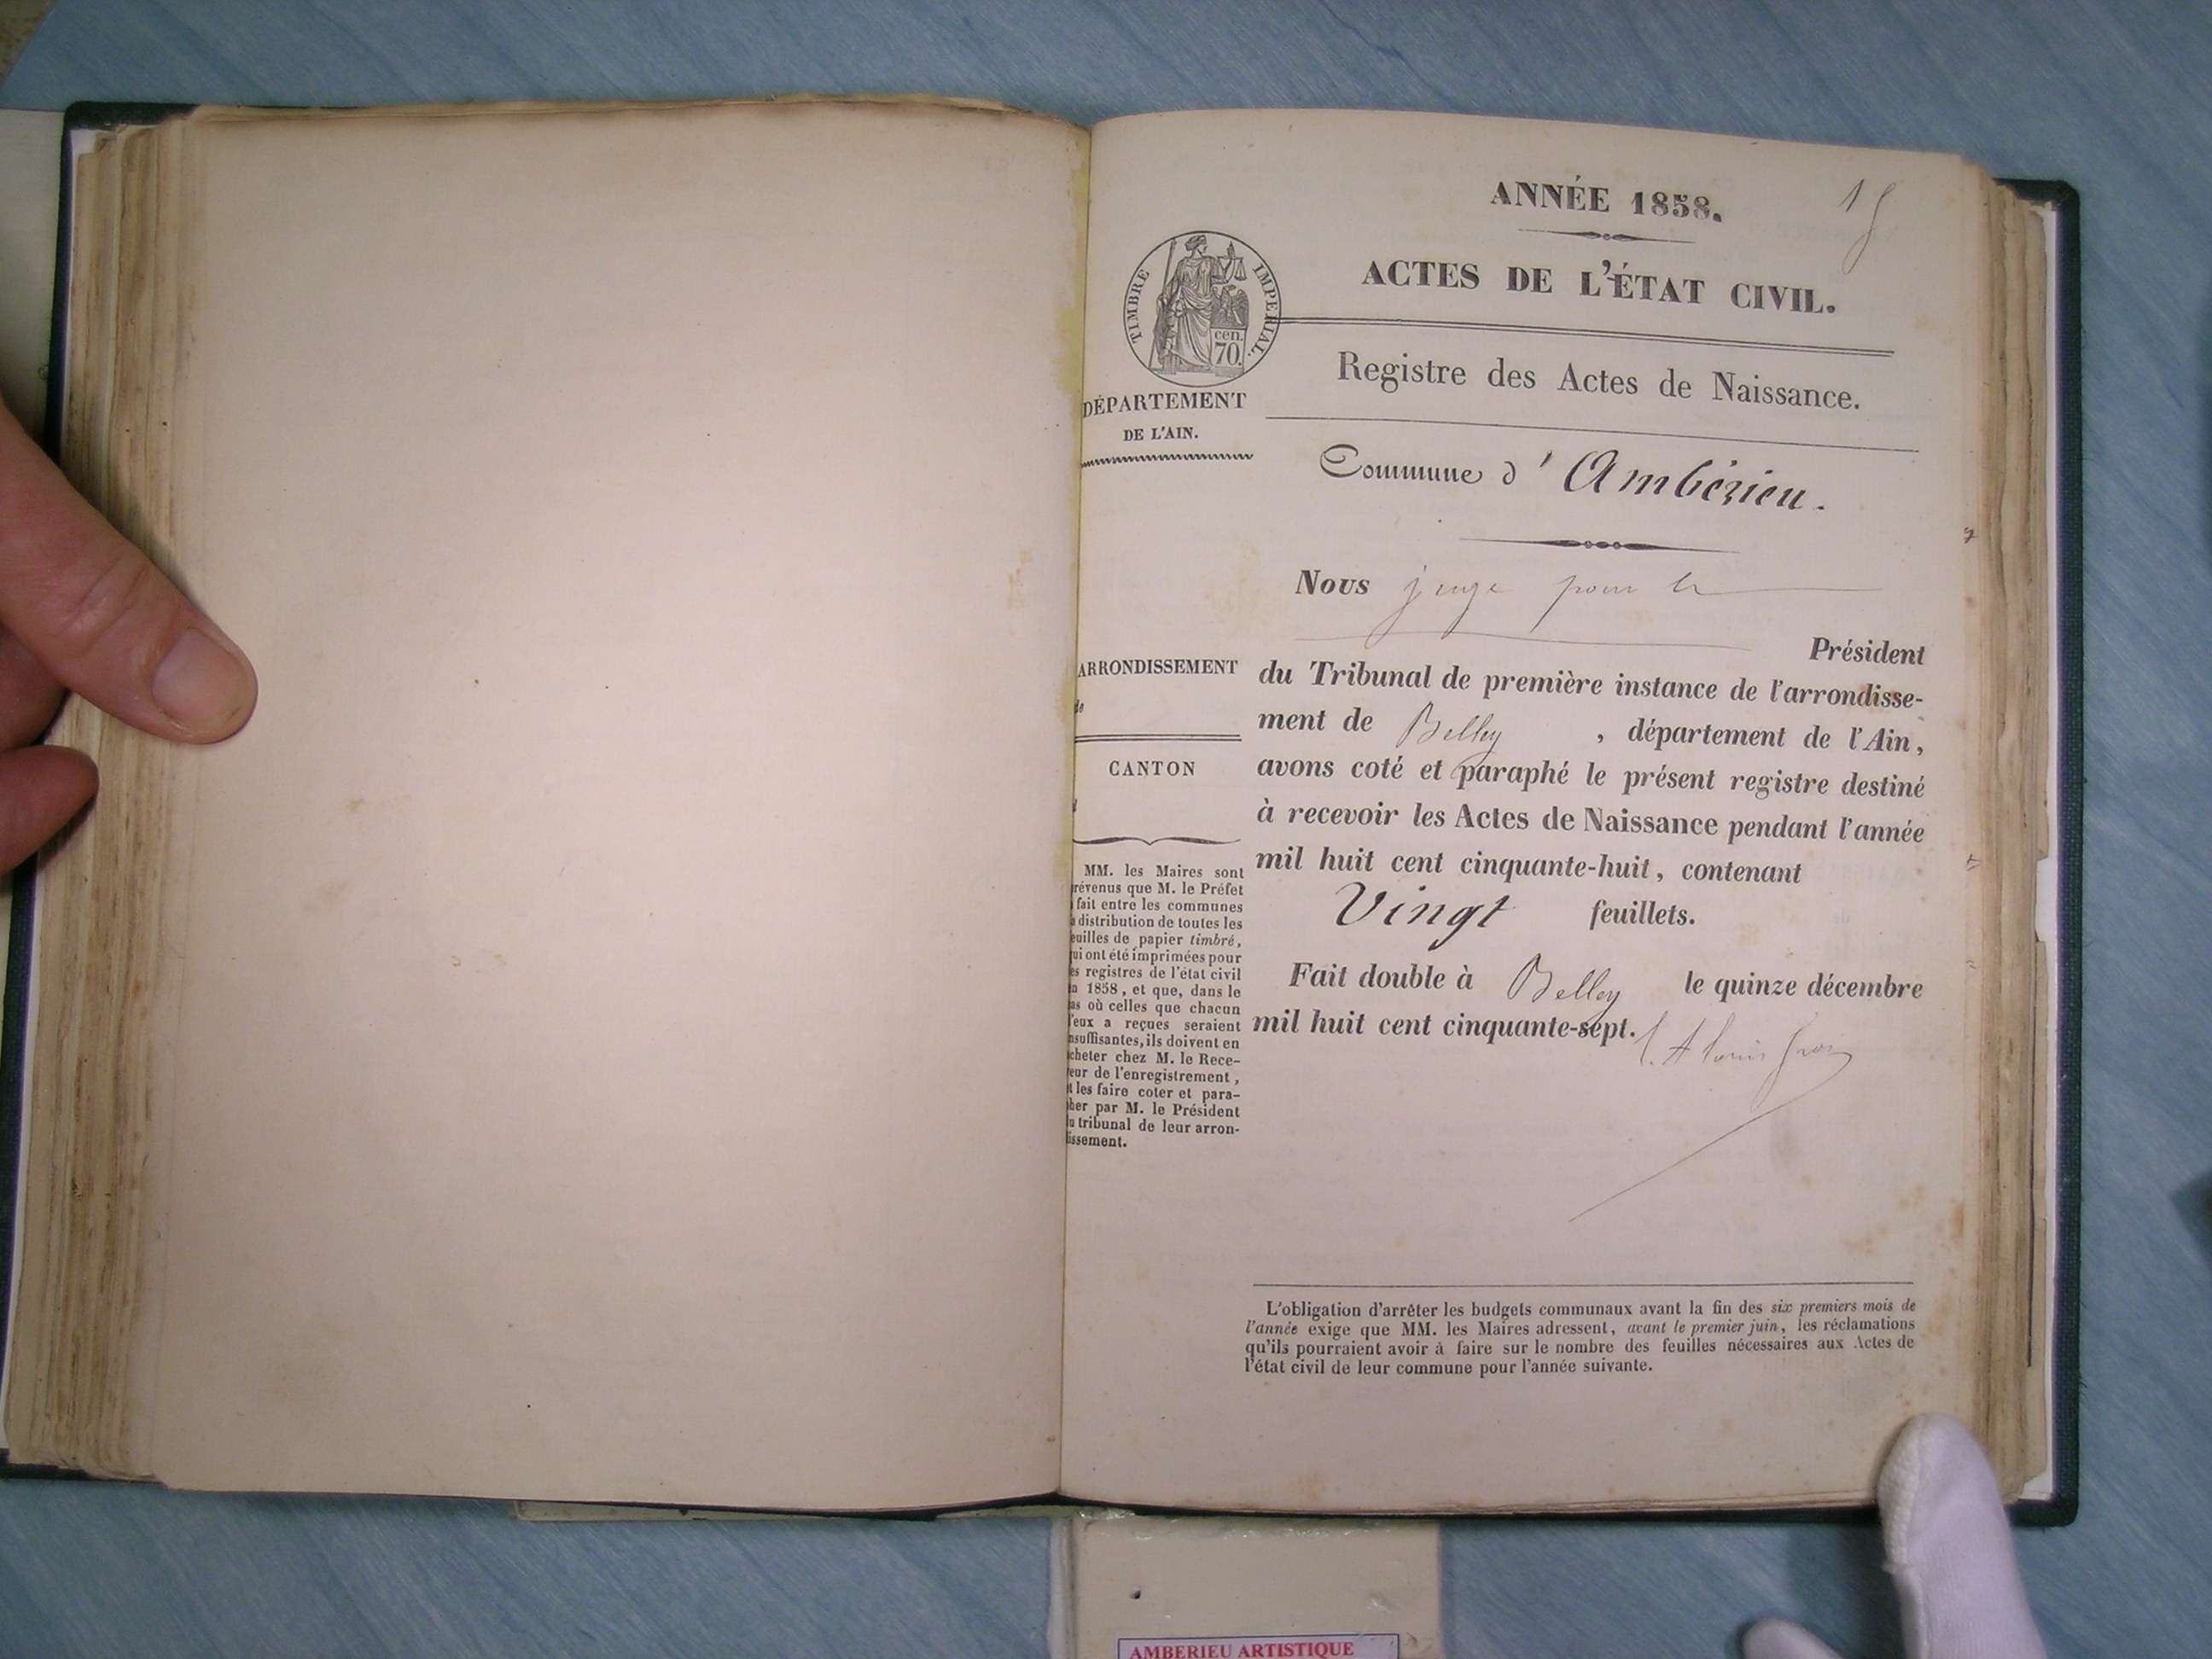 ANNÉE 1858.
ACTES DE L'ÉTAT CIVIL.
TIMBRE IMPERIAL.
cen.
70.
Registre des Actes de Naissance.
DÉPARTEMENT
DE L'AIN.
Commune d'Ambérieu.
Nous juge pour le
Président
du Tribunal de première instance de l'arrondisse-
ment de Belley, département de l'Ain,
avons coté et paraphé le présent registre destiné
à recevoir les Actes de Naissance pendant l'année
mil huit cent cinquante-huit, contenant
Vingt feuillets.
Fait double à Belley le quinze décembre
mil huit cent cinquante-sept.
ARRONDISSEMENT
de
CANTON
MM. les Maires sont
révenus que M. le Préfet
fait entre les communes
distribution de toutes les
euilles de papier timbré,
ui ont été imprimées pour
es registres de l'état civil
n 1858, et que, dans le
as où celles que chacun
d'eux a reçues seraient
nsuffisantes, ils doivent en
cheter chez M. le Rece-
eur de l'enregistrement,
t les faire coter et para-
her par M. le Président
u tribunal de leur arron-
issement.
L'obligation d'arrêter les budgets communaux avant la fin des six premiers mois de
l'année exige que MM. les Maires adressent, avant le premier juin, les réclamations
qu'ils pourraient avoir à faire sur le nombre des feuilles nécessaires aux Actes de
l'état civil de leur commune pour l'année suivante.
AMBERIEU ARTISTIQUE